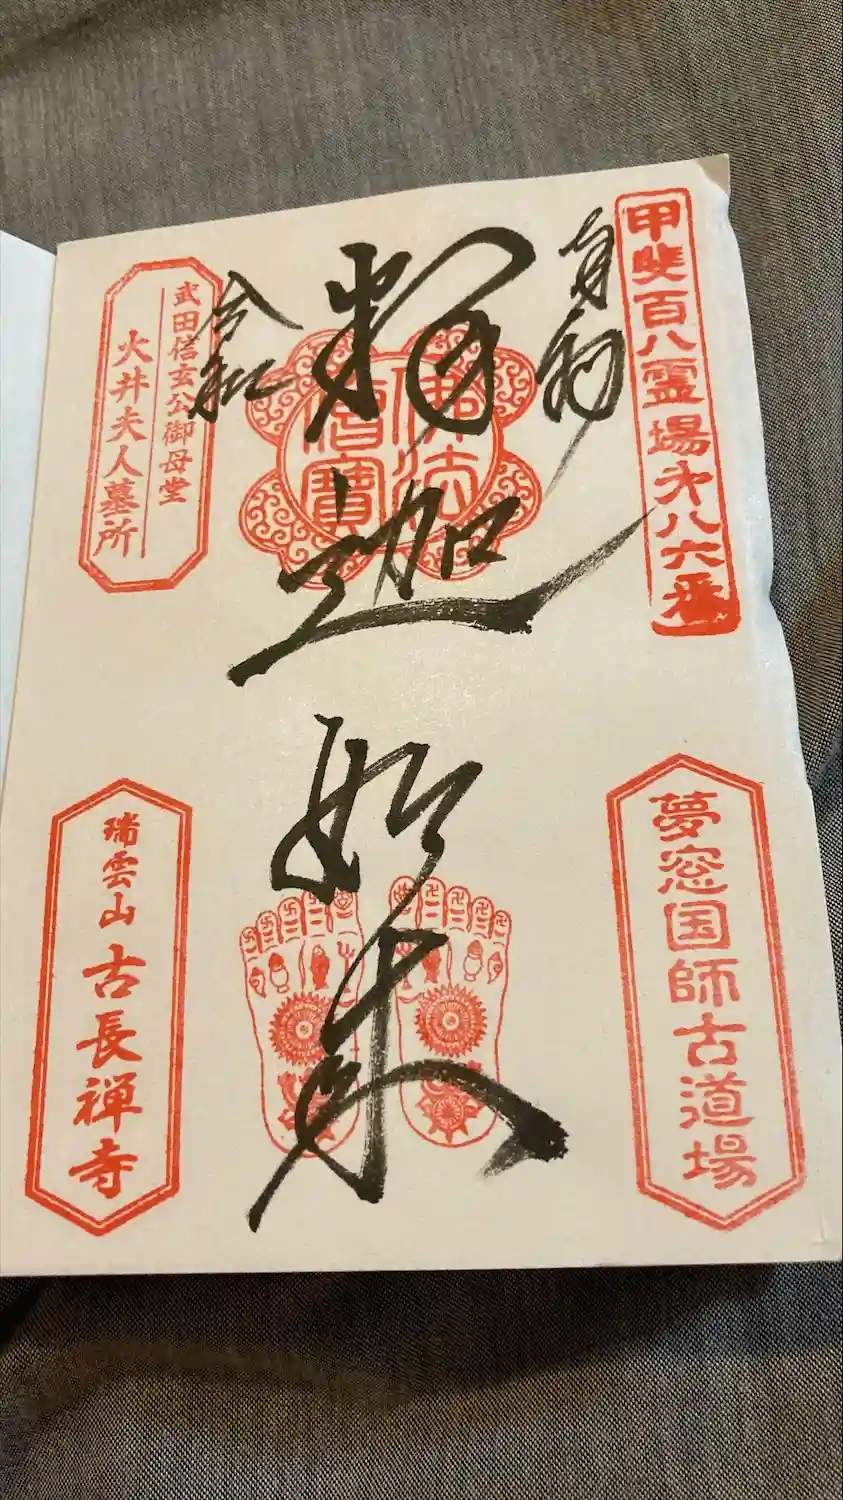 甲斐百八霊場㐧八六番
夢窓国師古道場
釈迦如来
佛法
僧寶
令和
武田信玄公御母堂
大井夫人墓所
瑞雲山 古長禅寺